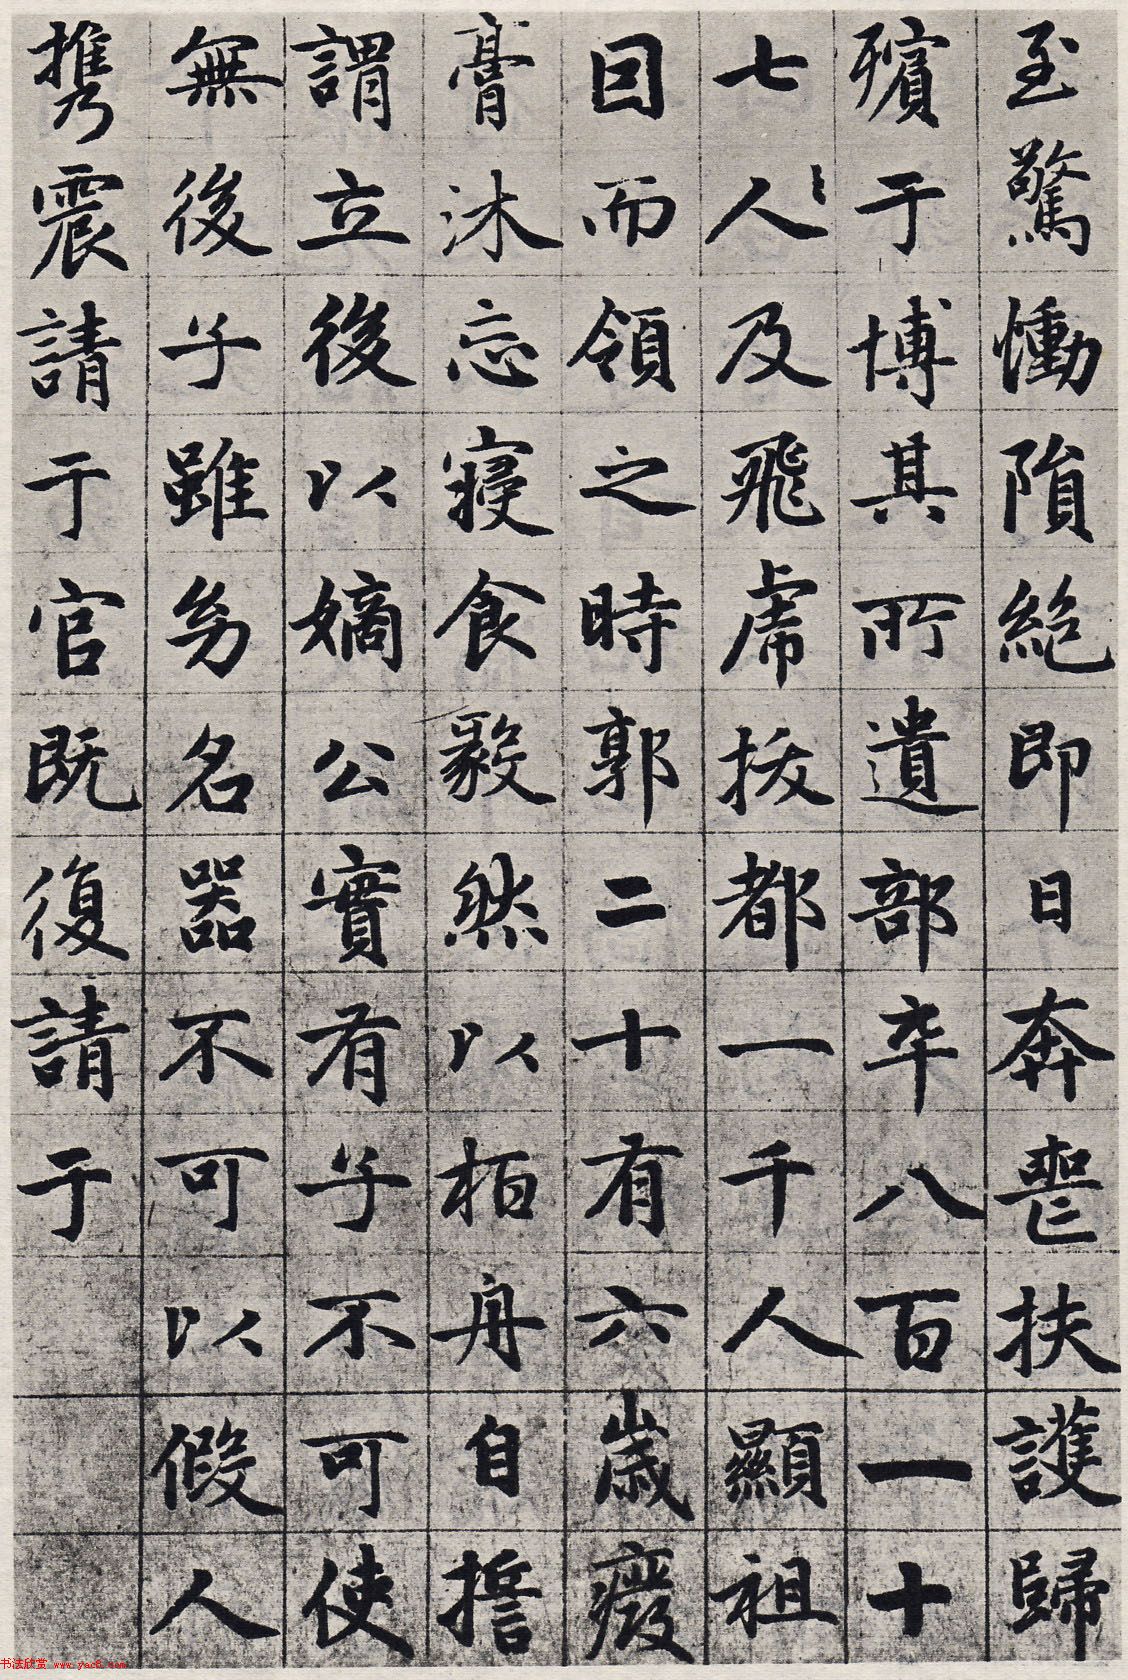 至驚慟隕絕即日奔喪扶護歸
殯于博其所遺部卒八百一十
七人及飛虎拔都一千人顯祖
曰而領之時郭二十有六歲癈
膏沐忘寢食毅然以栢舟自誓
謂立後以嫡公實有子不可使
無後子雖幼名器不可以假人
携震請于官既復請于
书法欣赏 www.yac8.com